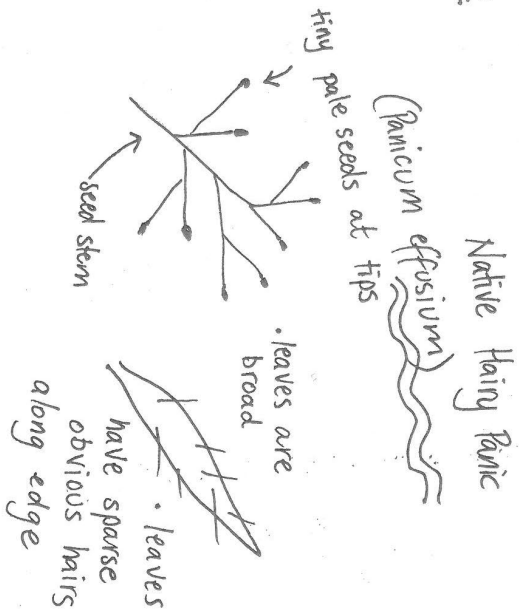 Native Hairy Panic
(Panicum effusium)
tiny pale seeds at tips
seed stem
• leaves are
broad
• leaves
have sparse
obvious hairs
along edge